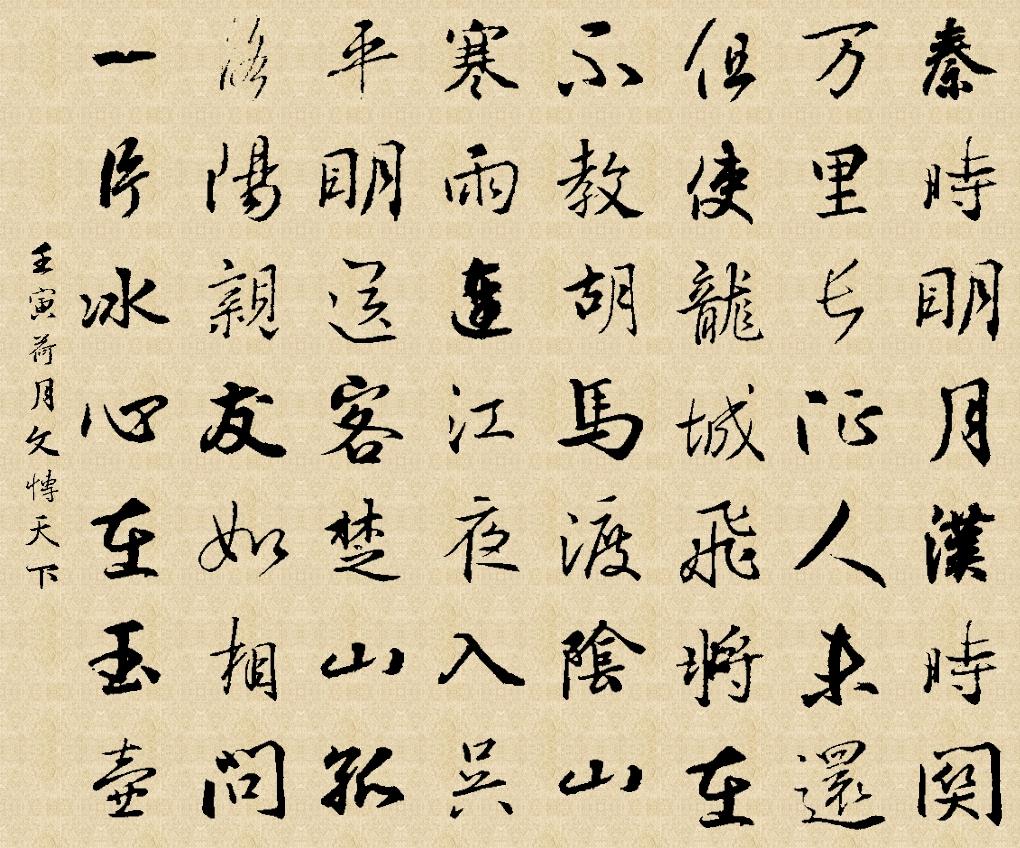 秦時明月漢時関
万里长征人未還
但使龍城飛將在
不教胡馬渡陰山
寒雨連江夜入吴
平明送客楚山孤
洛陽親友如相問
一片冰心在玉壺
壬寅荷月文博天下